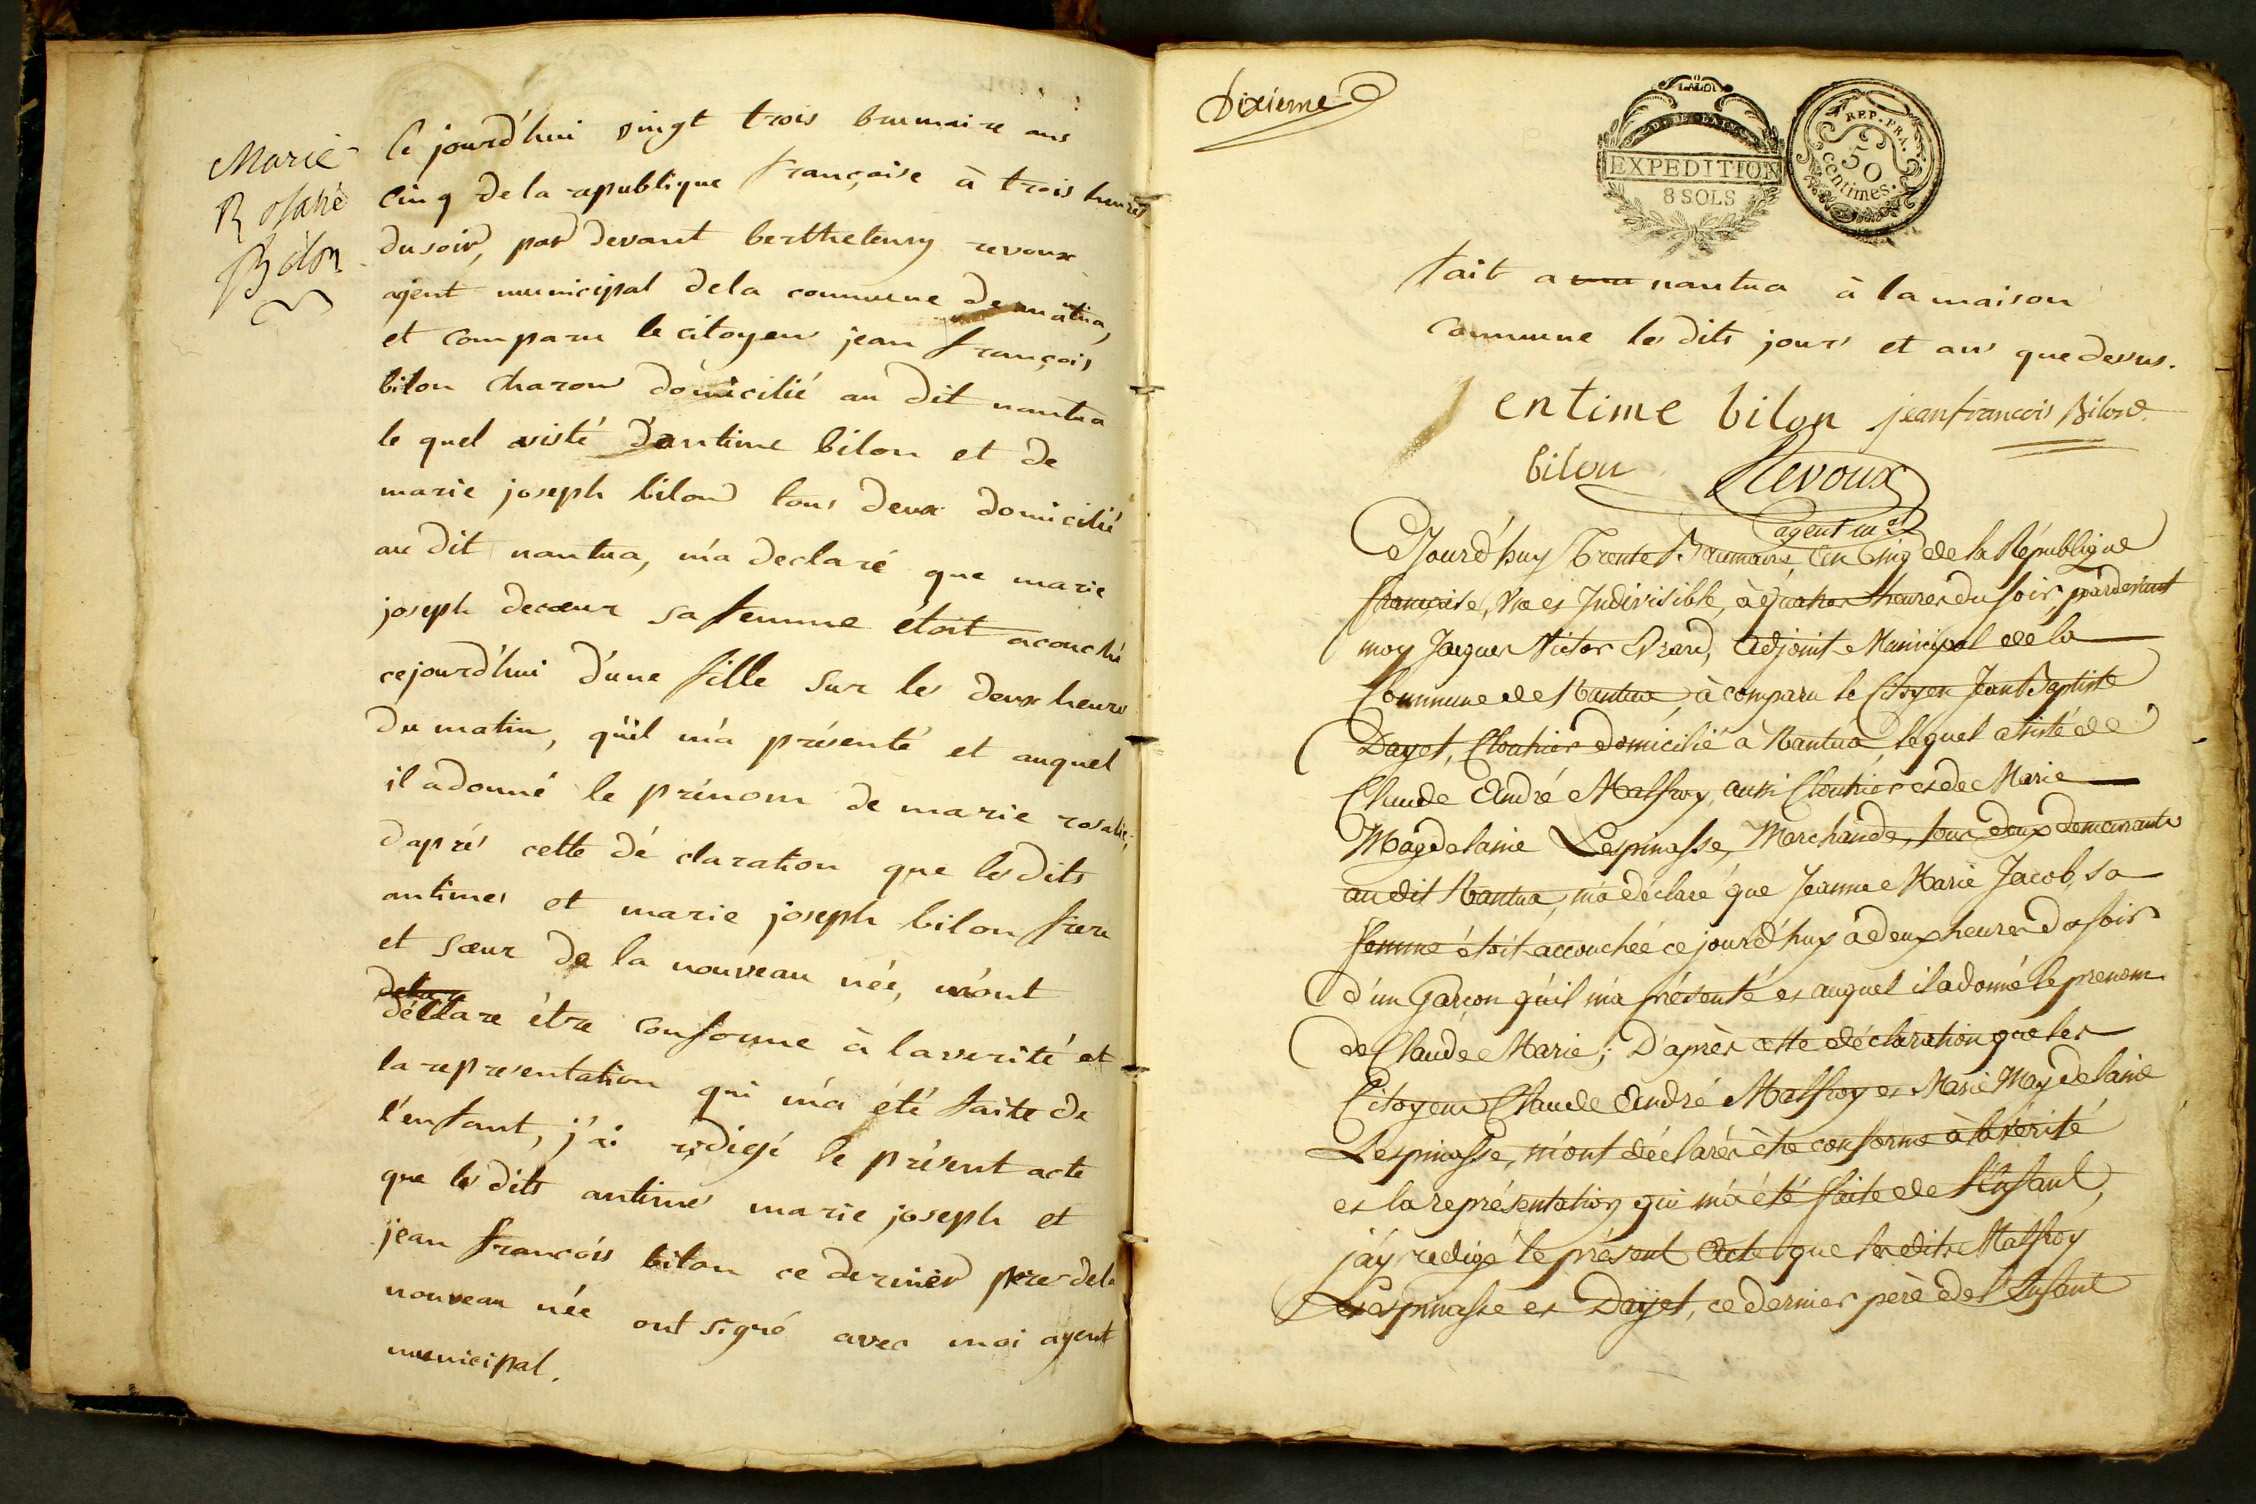 Marie
Rosalie
Bilon
Ce jourd'hui vingt trois brumaire ans
cinq de la republique française à trois heures
du soir, par devant berthelemy revoux
agent municipal de la commune de nantua,
et comparu le citoyen jean françois
bilon charon domicilié au dit nantua
le quel asisté d'antime bilon et de
marie joseph bilon tous deux domicilié
au dit nantua, m'a declaré que marie
joseph decœur sa femme étoit acouché
cejourd'hui d'une fille sur les deux heures
du matin, qu'il m'a présenté et auquel
il a donné le prénom de marie rosalie,
d'aprés cette dé claration que les dits
antimes et marie joseph bilon frere
et sœur de la nouveau née, m'ont
déclare étre conforme à la verité et
la representation qui m'a été faite de
l'enfant, j'ai rédigé le présent acte
que les dits antimes marie joseph et
jean francois bilon ce dernier pere dela
nouveau née ont signé avec moi agent
municipal.
Dixieme
LA LOI
EXPEDITION
8 SOLS
REP. FRA.
50
centimes.
fait a nantua à la maison
commune les dits jours et an que dessus.
entime bilon jean francois Bilon
bilon Revoux
agent m.al
Cejourd'huy Trente Brumaire, En Cinq de la République
française, Une et Indivisible, à quatres heures du soir, pardevant
moy Jacques Victor Evrard, Adjoint Municipal de la
Commune de Nantua, à comparu le Citoyen Jean Baptiste
Dayet, Cloutier domicilié à Nantua, lequel asisté de
Claude André Malfroy, aussi Cloutier et de Marie
Magdelaine Lespinasse, Marchande, tous deux demeurants
au dit Nantua, m'a déclaré que Jeanne Marie Jacob, sa
femme étoit accouchée ce jourd'huy à deux heures du soir
d'un Garçon qu'il m'a présenté et auquel il a donné le prenom
de Claude Marie; D'après cette déclaration que les
Citoyens Claude André Malfroy et Marie Magdelaine
Lespinasse, m'ont déclarés être conforme à la vérité
et la représentation qui m'a été faite de l'Enfant,
j'ay redigé le présent Acte que les dits Malfroy
Lespinasse et Dayet, ce dernier père de l'Enfant